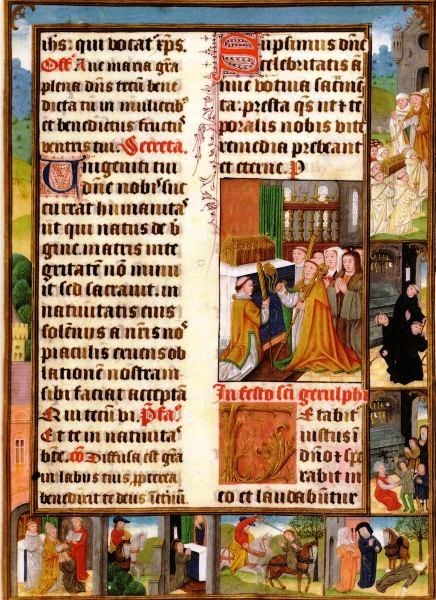 ihs: qui vocat' xps.
Off. Ave maria gra
plena dns tecu bene
dicta tu in mulierib'
et benedictus fructus
ventris tui. Secreta.
Unigeniti tui
dne nobis suc
currat humanitas
ut qui natus de v
gine matris inte
gritate no minu
it sed sacravit. in
nativitatis eius
solenijs a nris nos
piaculis exuens ob
latione nostram
sibi faciat accepta
Qui tecu vi. Pfa.
Et te in nativitate
bte. co Diffusa est gra
in labijs tuis, pp terea
benedixit te deus i eternu.
Supsimus dne
celebritatis a
nue votiva sacrame
ta: presta qs ut & te
poralis nobis vite
remedia prebeant
et eterne. P
In festo sci gerulphi
Letabit
iustus in
dno & spe
rabit in
eo et laudabuntur